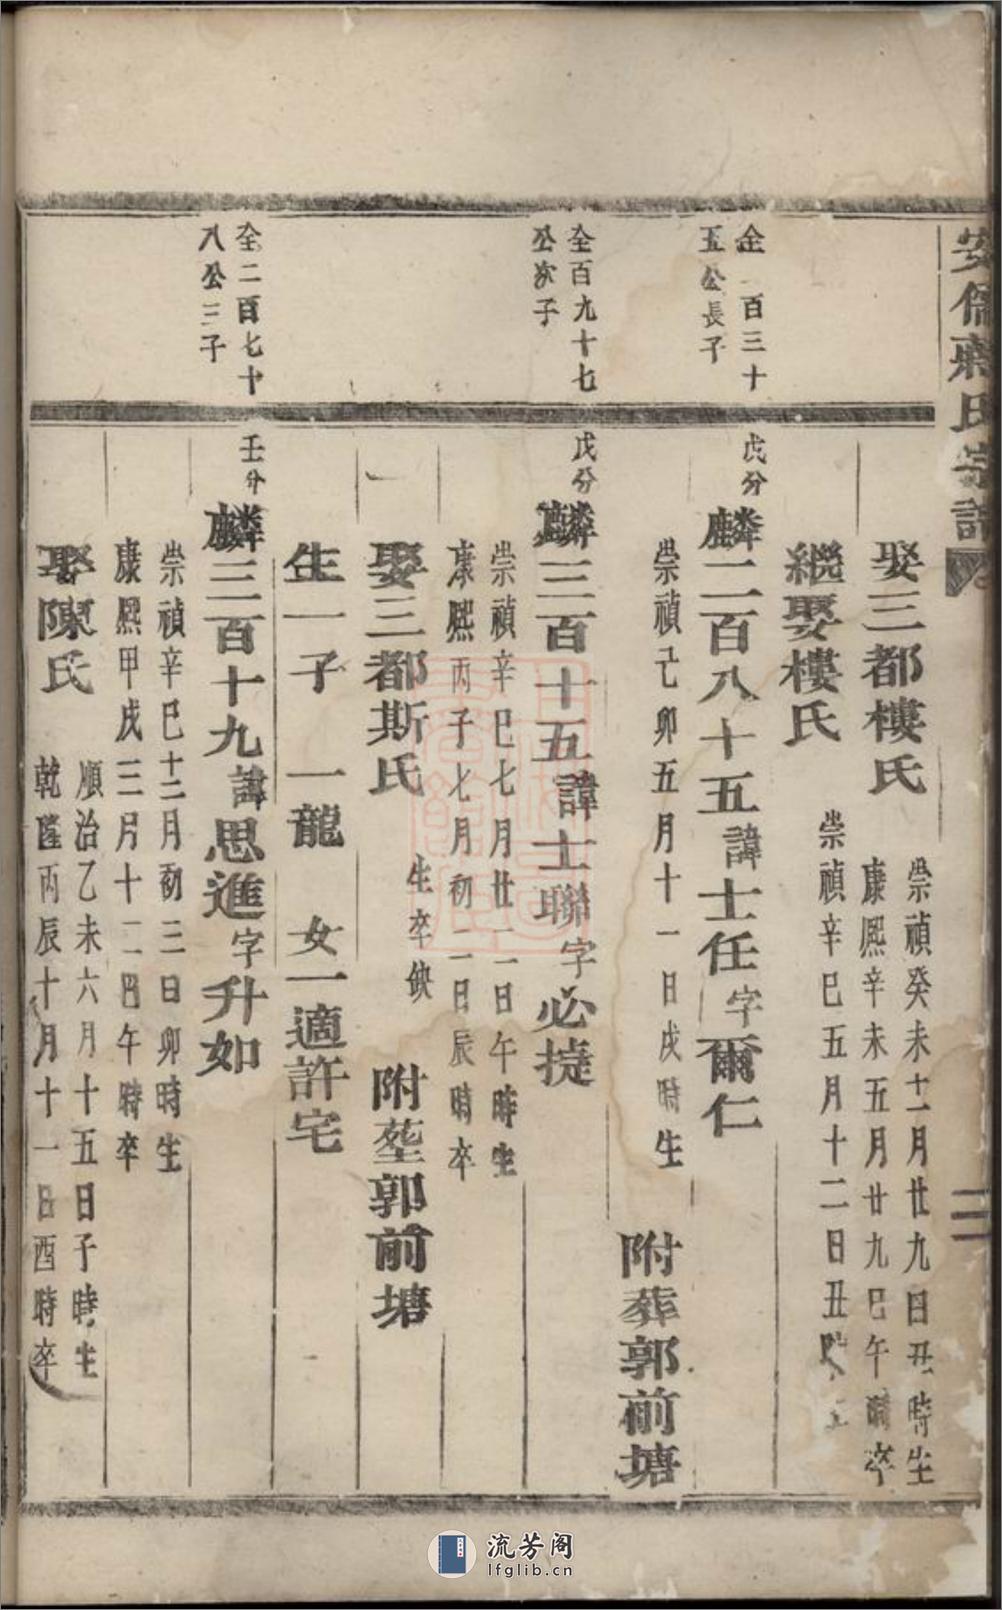 安儒蔣氏宗譜
二
娶三都樓氏
崇禎癸未十二月廿九日丑時生
康熙辛未五月廿九巳午時卒
繼娶樓氏
崇禎辛巳五月十二日丑時生
全一百三十
五公長子
戊分
麟二百八十五諱士任字爾仁
崇禎己卯五月十一日戌時生
附葬郭前塘
全百九十七
公次子
戊分
麟三百十五諱士聯字必㨗
崇禎辛巳七月廿一日午時生
康熙丙子七月初二日辰時卒
娶三都斯氏
生卒缺
附塟郭前塘
生一子 一龍 女一適許宅
全二百七十
八公三子
壬分
麟三百十九諱思進字升如
崇禎辛巳十二月初三日卯時生
康熙甲戌三月十二日午時卒
娶陳氏
順治乙未六月十五日子時生
乾隆丙辰十月十一日酉時卒
流芳阁
lfglib.cn